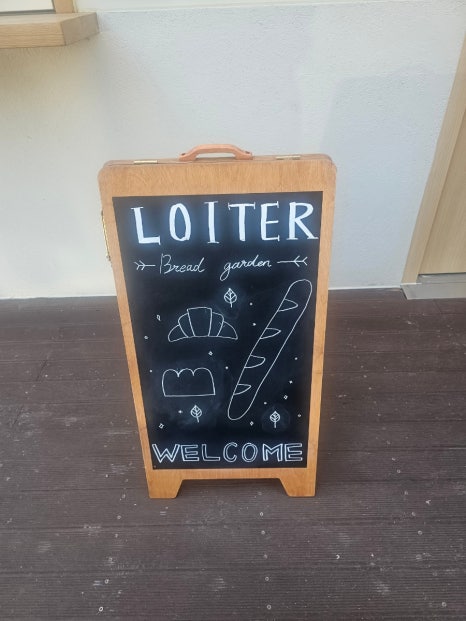 LOITER
Bread garden
WELCOME